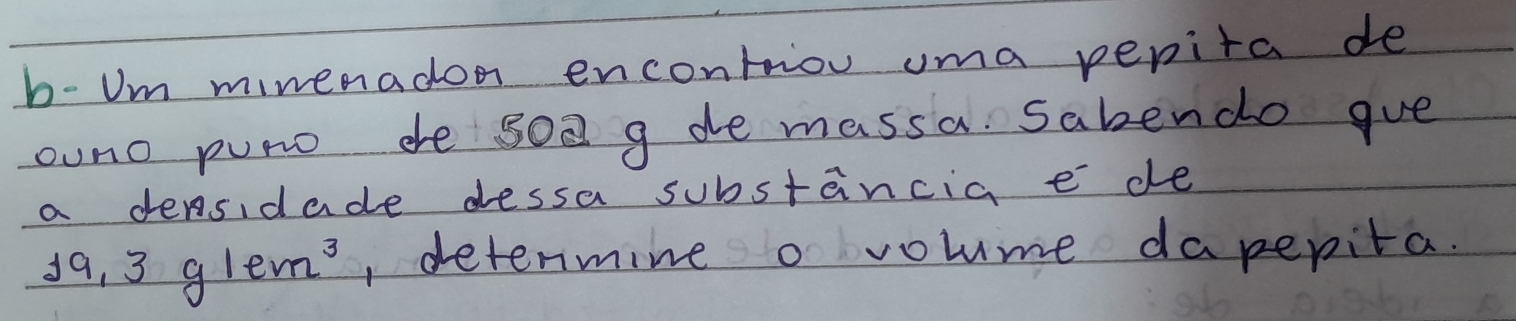 b- Um minerador encontriou uma pepita de
ouro puro de 502 g de massa. Sabendo que
a densidade dessa substância é de
19,3 g/cm³, determine o volume da pepita.